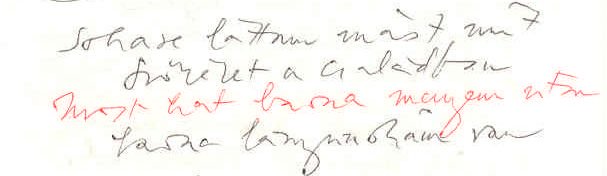 Sohase láttam mást, mint
szőkét a családban
Most hat barna menyem után
barna lányunokám van